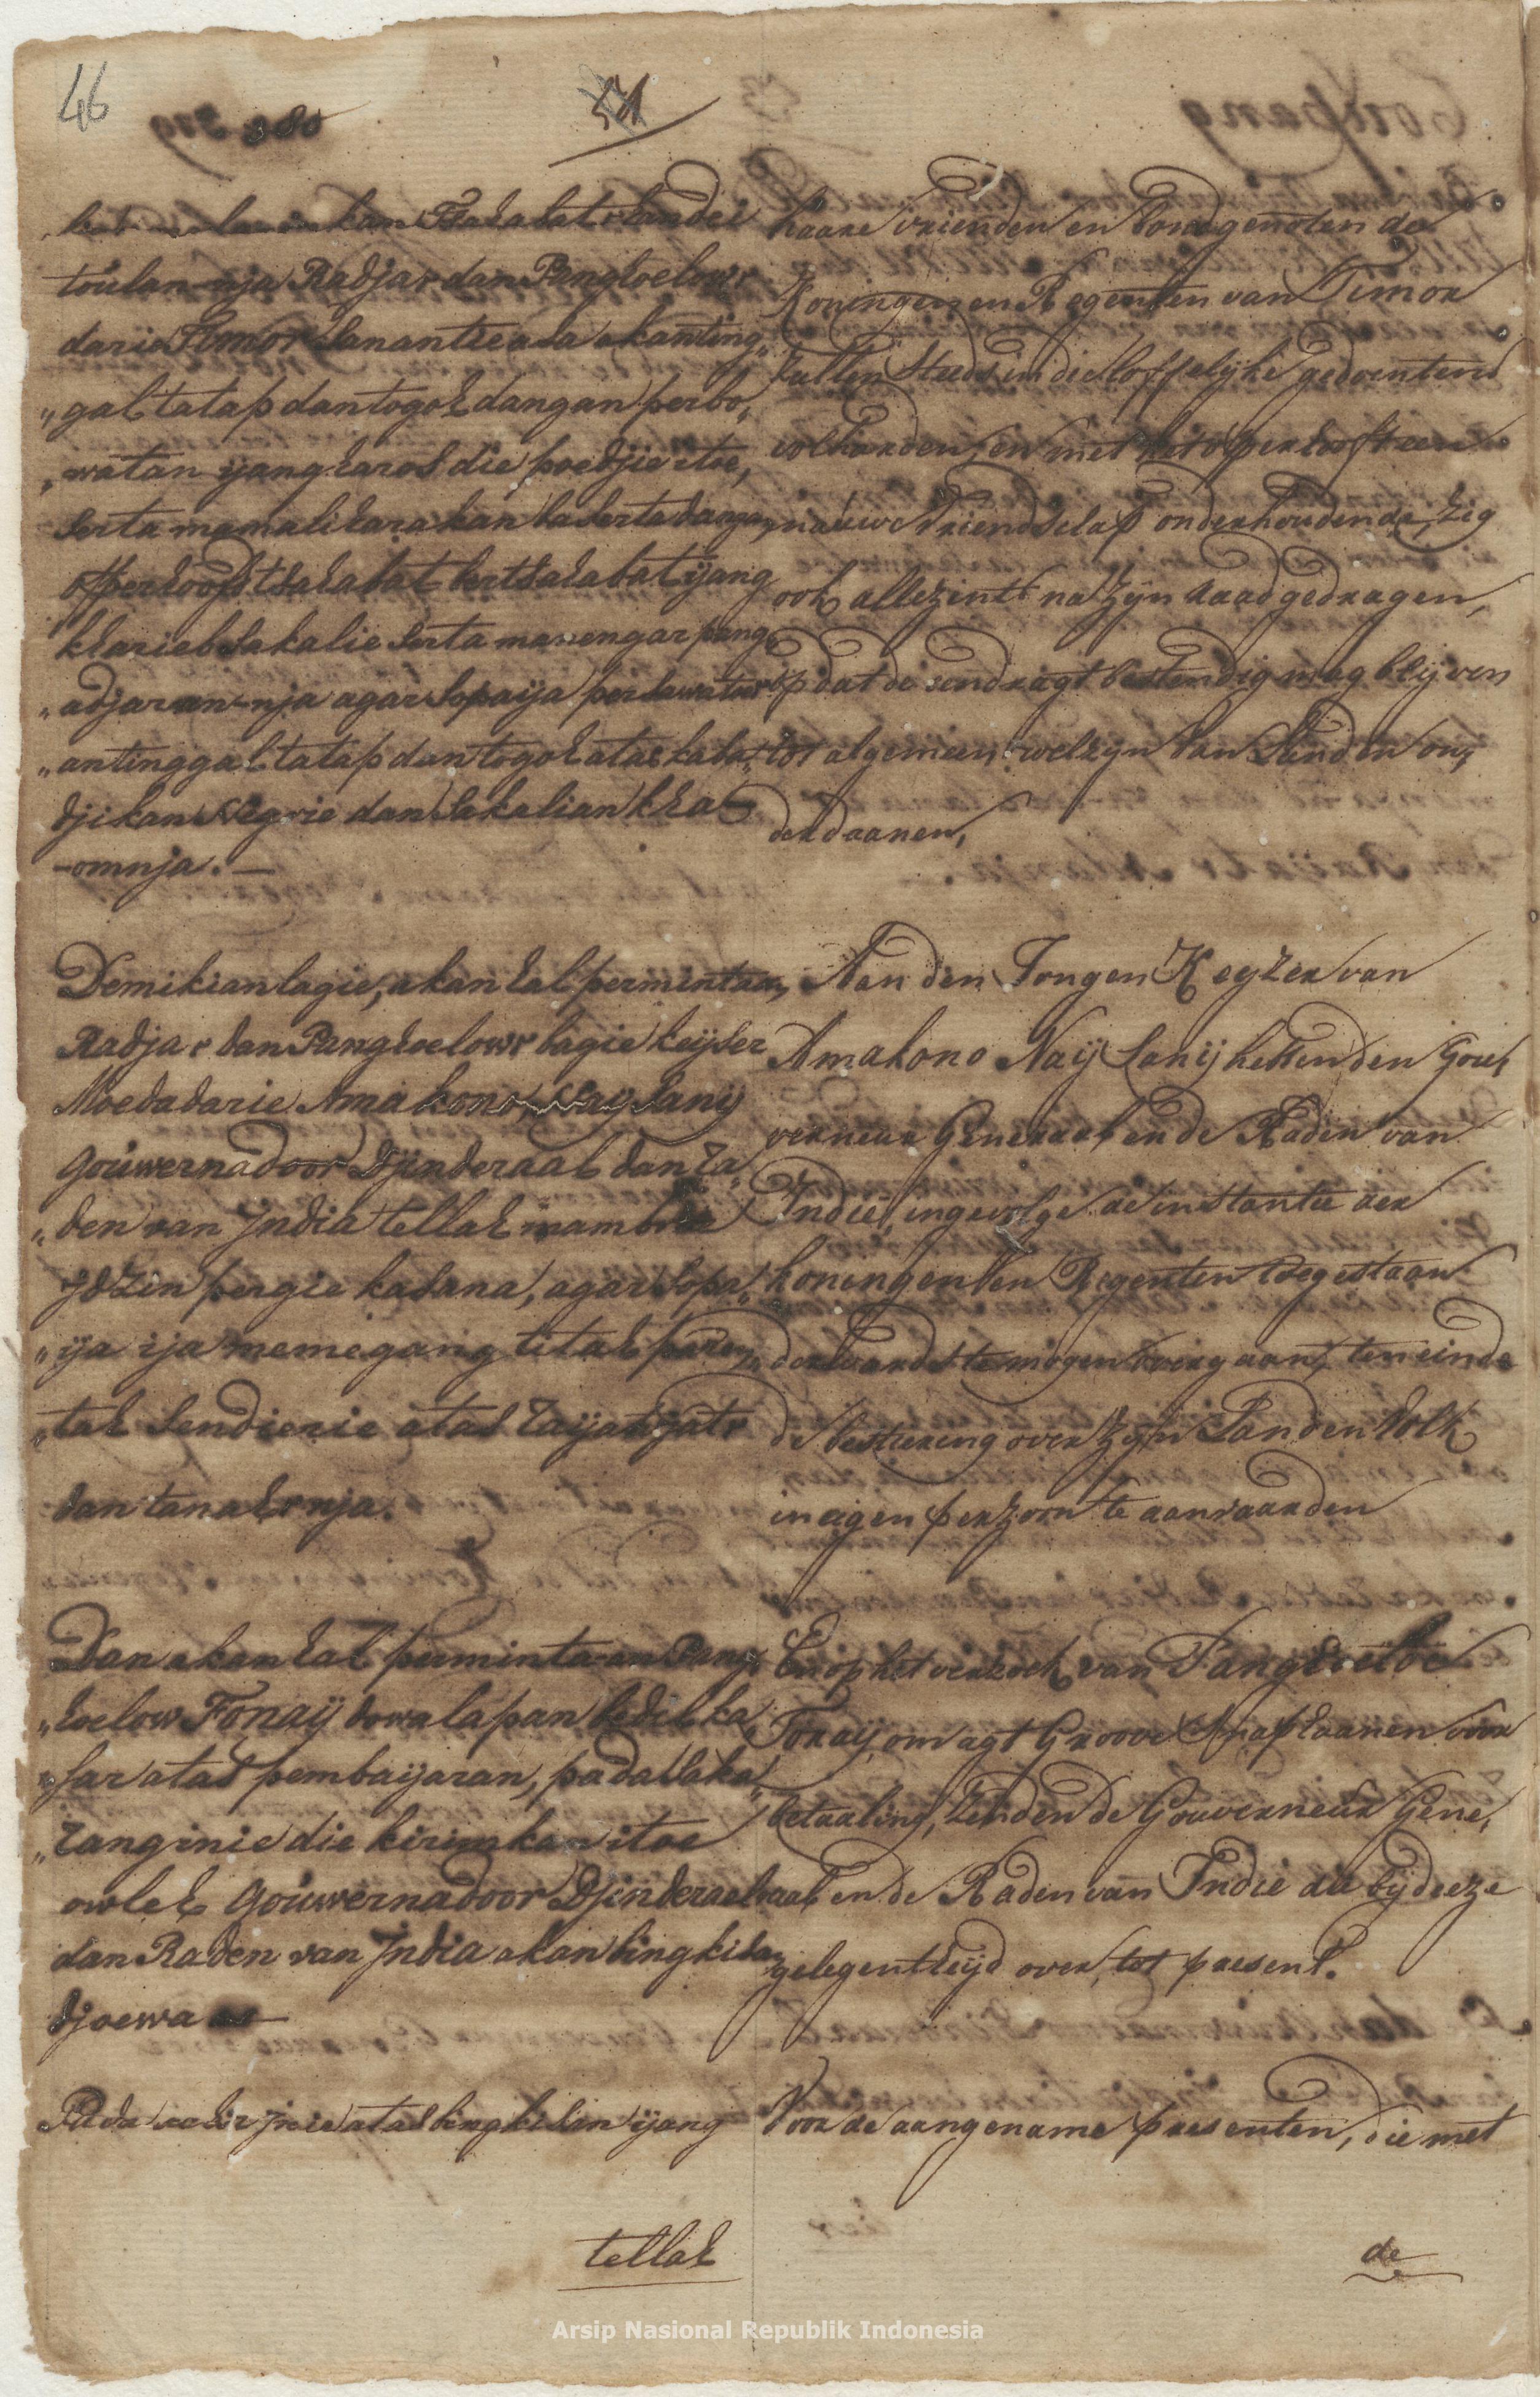 46
380
51
kan Tsahabat r dan dei
toulan-nja Radja r dan Pangloelow r
darie Timor Sanantieasa akan ting„
„gal tatap dan togoh dangan perbo„
„watan ijang haros die poedjie itoe,
Serta mamaliharakan baserta dangan
opperhooft Sahabat bertsahabat ijang
kharieb Sakalie Serta manengar pang„
„adjaran-nja agar Sopaija persawatoe„
„an tinggal tatap dan togoh atas kaba„
djikan Negrie dan Sakalian kha
-omnja. —
Demikian lagie, akan hal permintaan
Radja r dan Pangloelow r bagie keijser
Moeda darie Ama kono Naij Sanij
Gouwernadoor Djinderaal dan Ra„
„den van India tellah mambrie
Idzin pergie kasana, agar Sopa„
„ija ija memegang titah paren„
„tah Sendierie atas Raijat-jat r
dan tanah r nja.
Dan akan hal perminta-an Pang„
„hoelow Fonaij dowalapan bedil ka„
„sar atas pembaijaran, pada Saka„
„rang inie die kirimkan itoe
owleh Gouwernadoor Djinderael
dan Raden van India akan bingkisan
djoewa
Pada achir inie atas bingkisan ijang
tellah
haare vrienden en bondgenoten de
Koningen en Regenten van Timor
Sullen Steeds in die loffelijke gedoentens
volharden, en met het opperhooft een
nauwe vriendschap onderhoudende, zig
ook allezints na zijn raad gedragen,
op dat de eendragt bestendig mag blijven
tot algemeen welzijn van Land en on„
derdaanen,
Aan den Jongen Keyzer van
Amakono Naij Sanij hebben den Gou„
verneur Generaal en de Raden van
Indië, ingevolge de instantie der
koningen en Regenten toegestaan
derwaards te mogen overgaan, ten einde
de bestiering over zijn Land en volk
in eigen perzoon te aanvaarden
En op het verzoek van Pangoeloe
Fonaij, om agt Groove Snaphaanen voor
betaaling, zenden de Gouverneur Gene„
raal en de Raden van Indië die bij deeze
gelegentheijd over, tot present.
Voor de aangename presenten, die met
de
Arsip Nasional Republik Indonesia